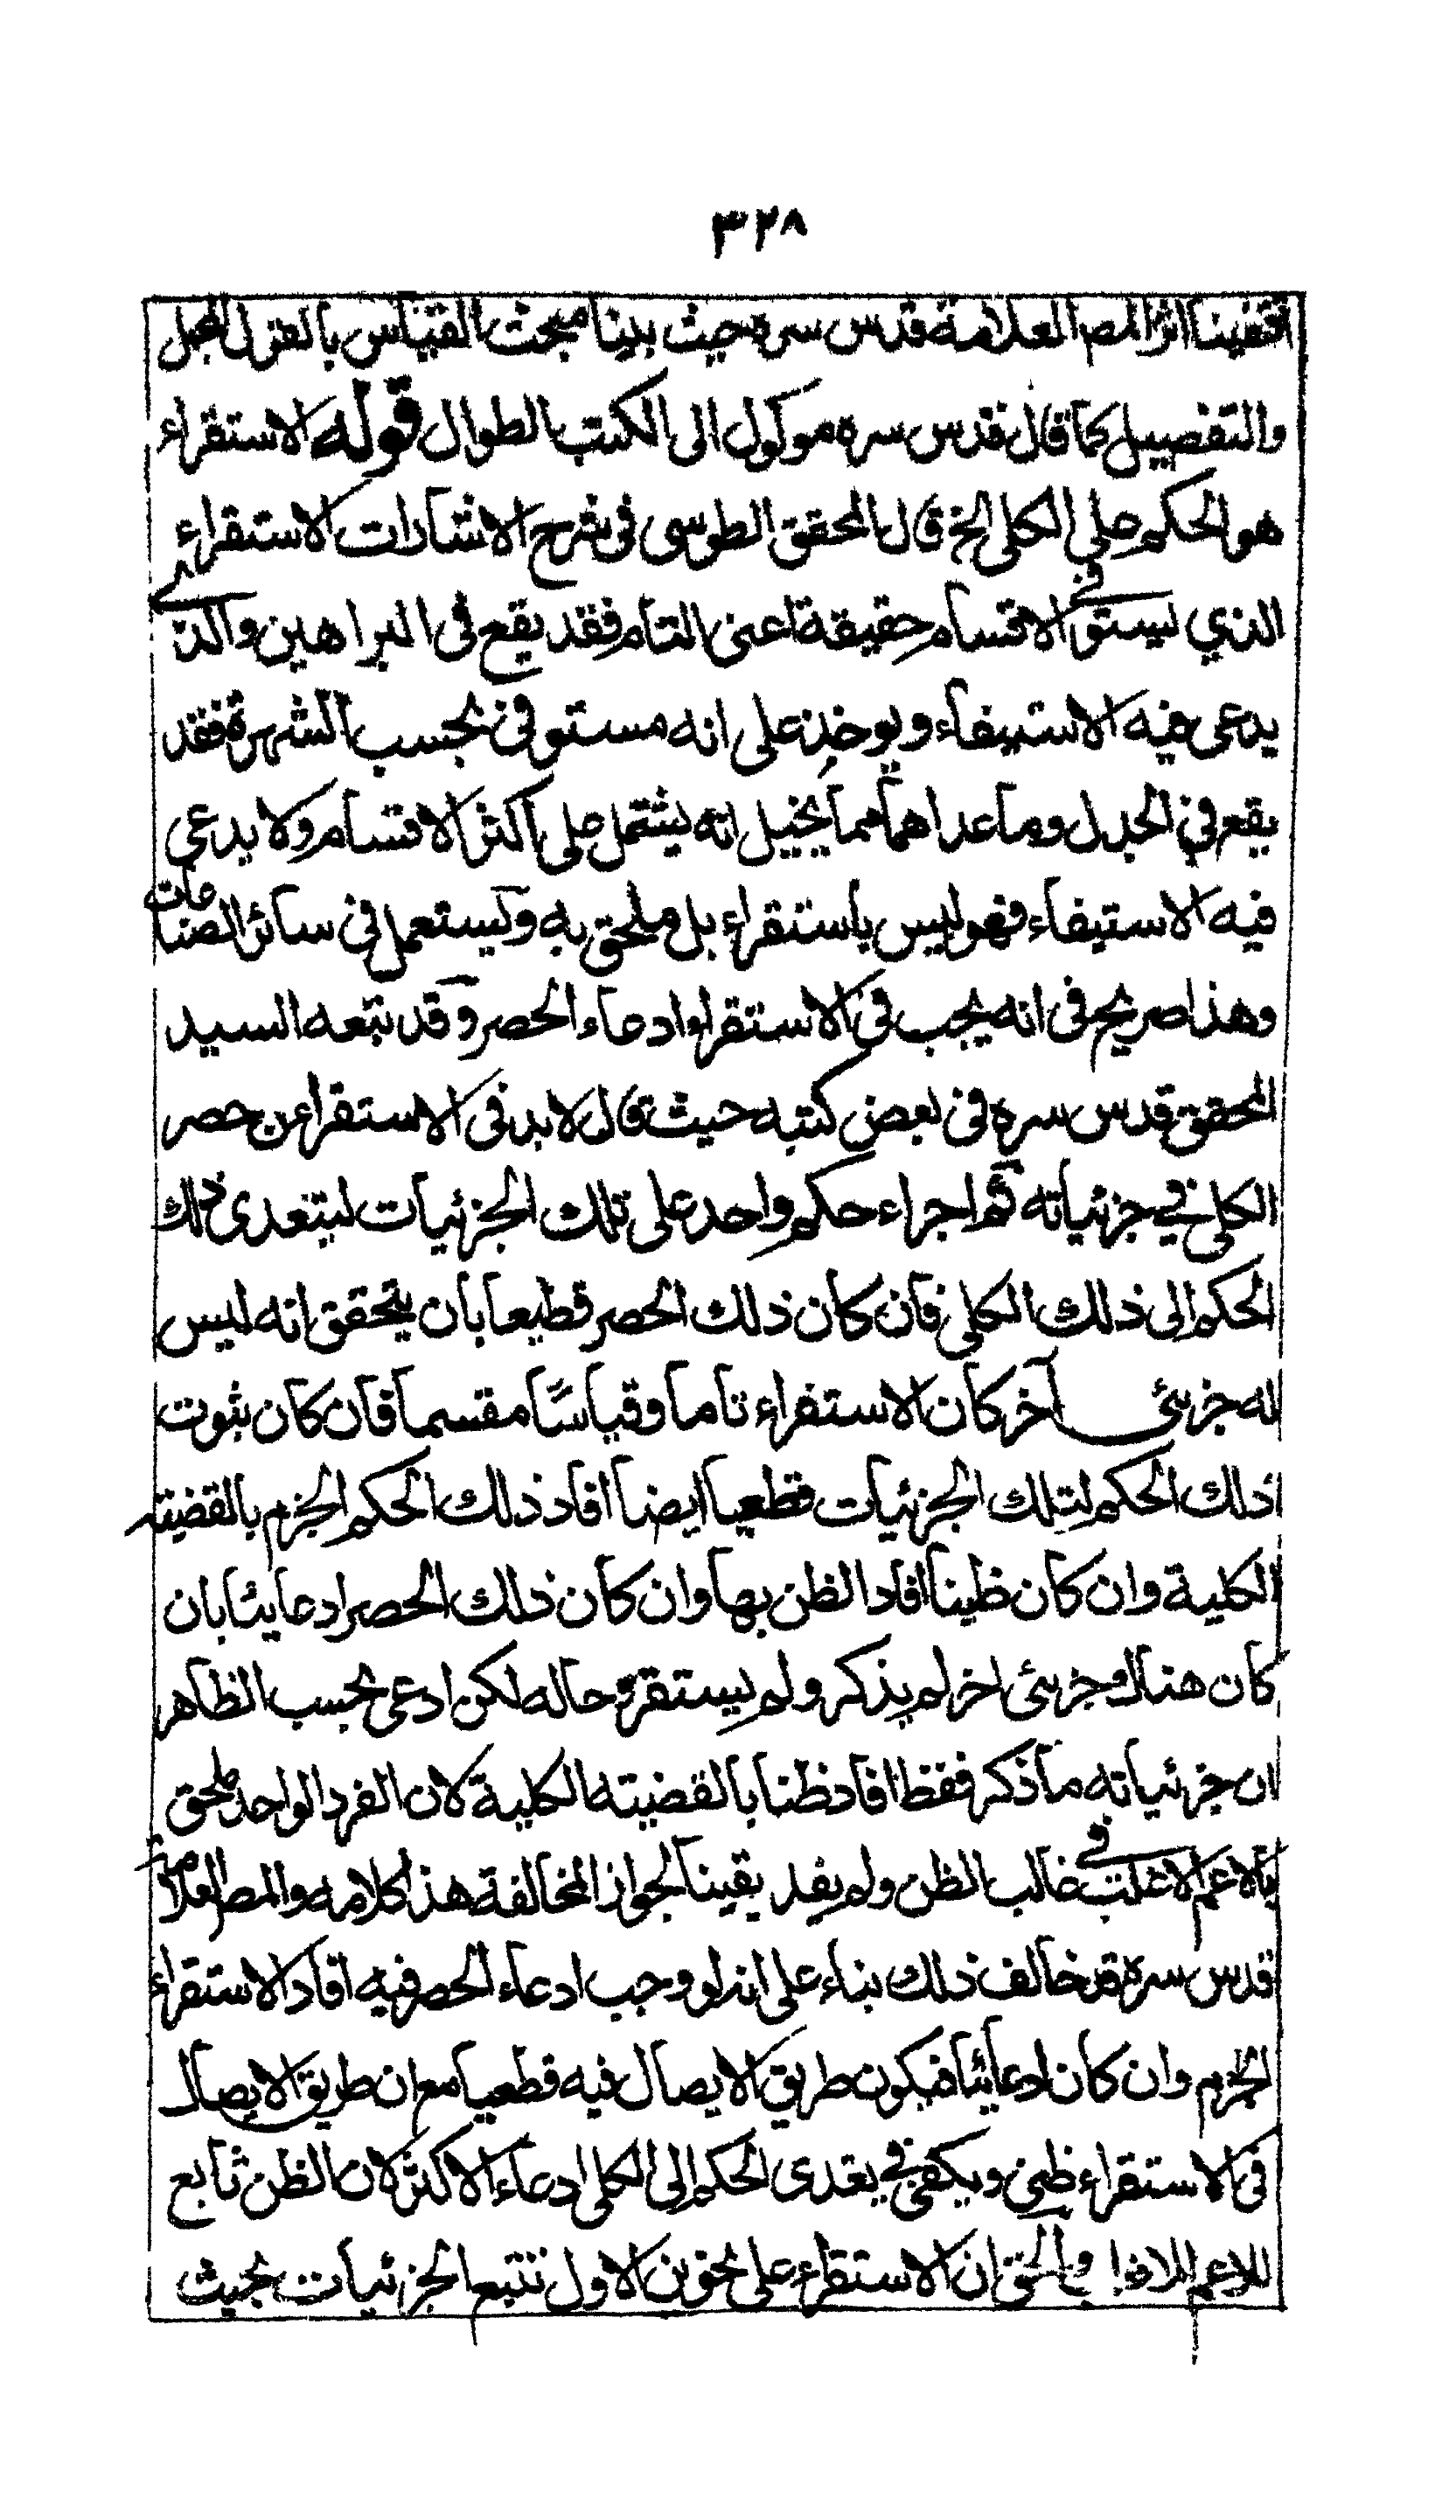 ٣٢٨
اقتفينا اثر المص العلامة قدس سره حيث بينا مبحث القياس بالقول المجمل
والتفصيل كما قال قدس سره موكول الى الكتب الطوال قوله الاستقراء
هو الحكم على الكلى الخ قال المحقق الطوسى فى شرح الاشارات الاستقراء
الذي يستوفى الاقسام حقيقة اعنى التام فقد يقع فى البراهين والذى
يدعى فيه الاستيفاء ويوخذ على انه مستوفى بحسب الشهرة فقد
يقع في الجدل وما عداهما مما يخيل انه يشتمل على اكثر الاقسام ولا يدعى
فيه الاستيفاء فهو ليس باستقراء بل ملحق به ويستعمل فى سائر الصناعات
وهذا صريح فى انه يجب فى الاستقراء ادعاء الحصر وقد تبعه السيد
المحقق قدس سره فى بعض كتبه حيث قال لا بد فى الاستقراء من حصر
الكلى في جزئياته ثم اجراء حكم واحد على تلك الجزئيات ليتعدى ذلك
الحكم الى ذلك الكلى فان كان ذلك الحصر قطيعا بان يتحقق انه ليس
له جزئى آخر كان الاستقراء تاما وقياسًا مقسما فان كان ثبوت
ذلك الحكم لتلك الجزئيات قطعيا ايضا افاد ذلك الحكم الجزم بالقضيته
الكلية وان كان ظينا افاد الظن بها وان كان ذلك الحصر ادعايئا بان
كان هناك جزئى اخر لم يذكر ولم يستقر وحاله لكن ادعى بحسب الظاهر
ان جزئياته ما ذكر فقط افاد ظنا بالقضيته الكلية لان الفرد الواحد ملحق
بالاعم الاغلب فى غالب الظن ولم يفد يقينا لجواز المخالفة هذا كلامه والمص العلامة
قدس سره قد خالف ذلك بناء على انه لو وجب ادعاء الحصر فيه افاد الاستقراء
الجزم وان كان ادعايئا فيكون طريق الايصال فيه قطعيا مع ان طريق الايصال
فى الاستقراء ظنى ويكفى في تعدى الحكم الى الكلى ادعاء الاكثر لان الظن تابع
للاعم الاغلب والحق ان الاستقراء على نحوين الاول تتبع الجزئيات بحيث